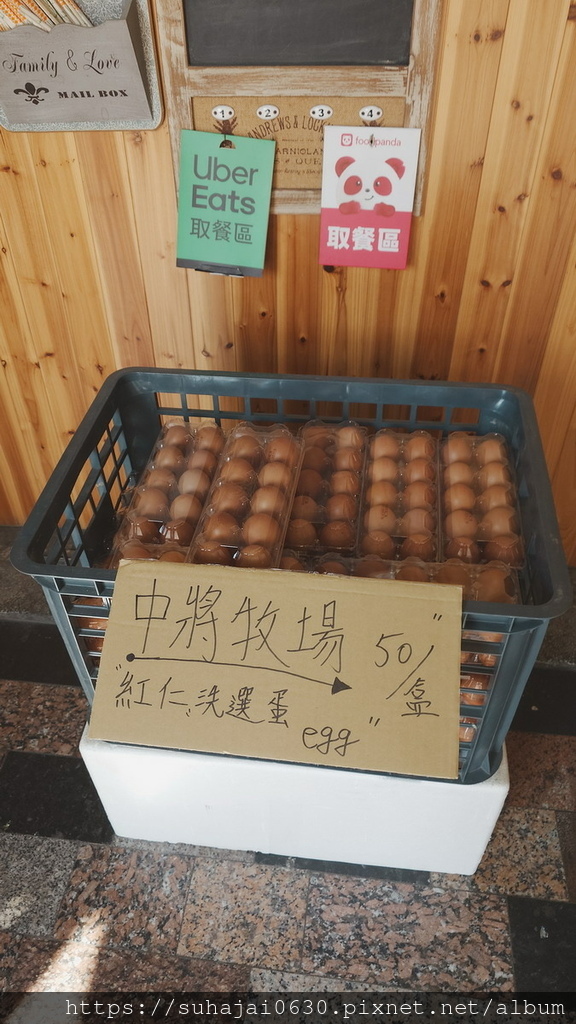 Family & Love
MAIL BOX
1 2 3 4
Uber
Eats
取餐區
foodpanda
取餐區
中將牧場
50/盒
"紅仁、洗選蛋
egg"
https://suhajai0630.pixnet.net/album